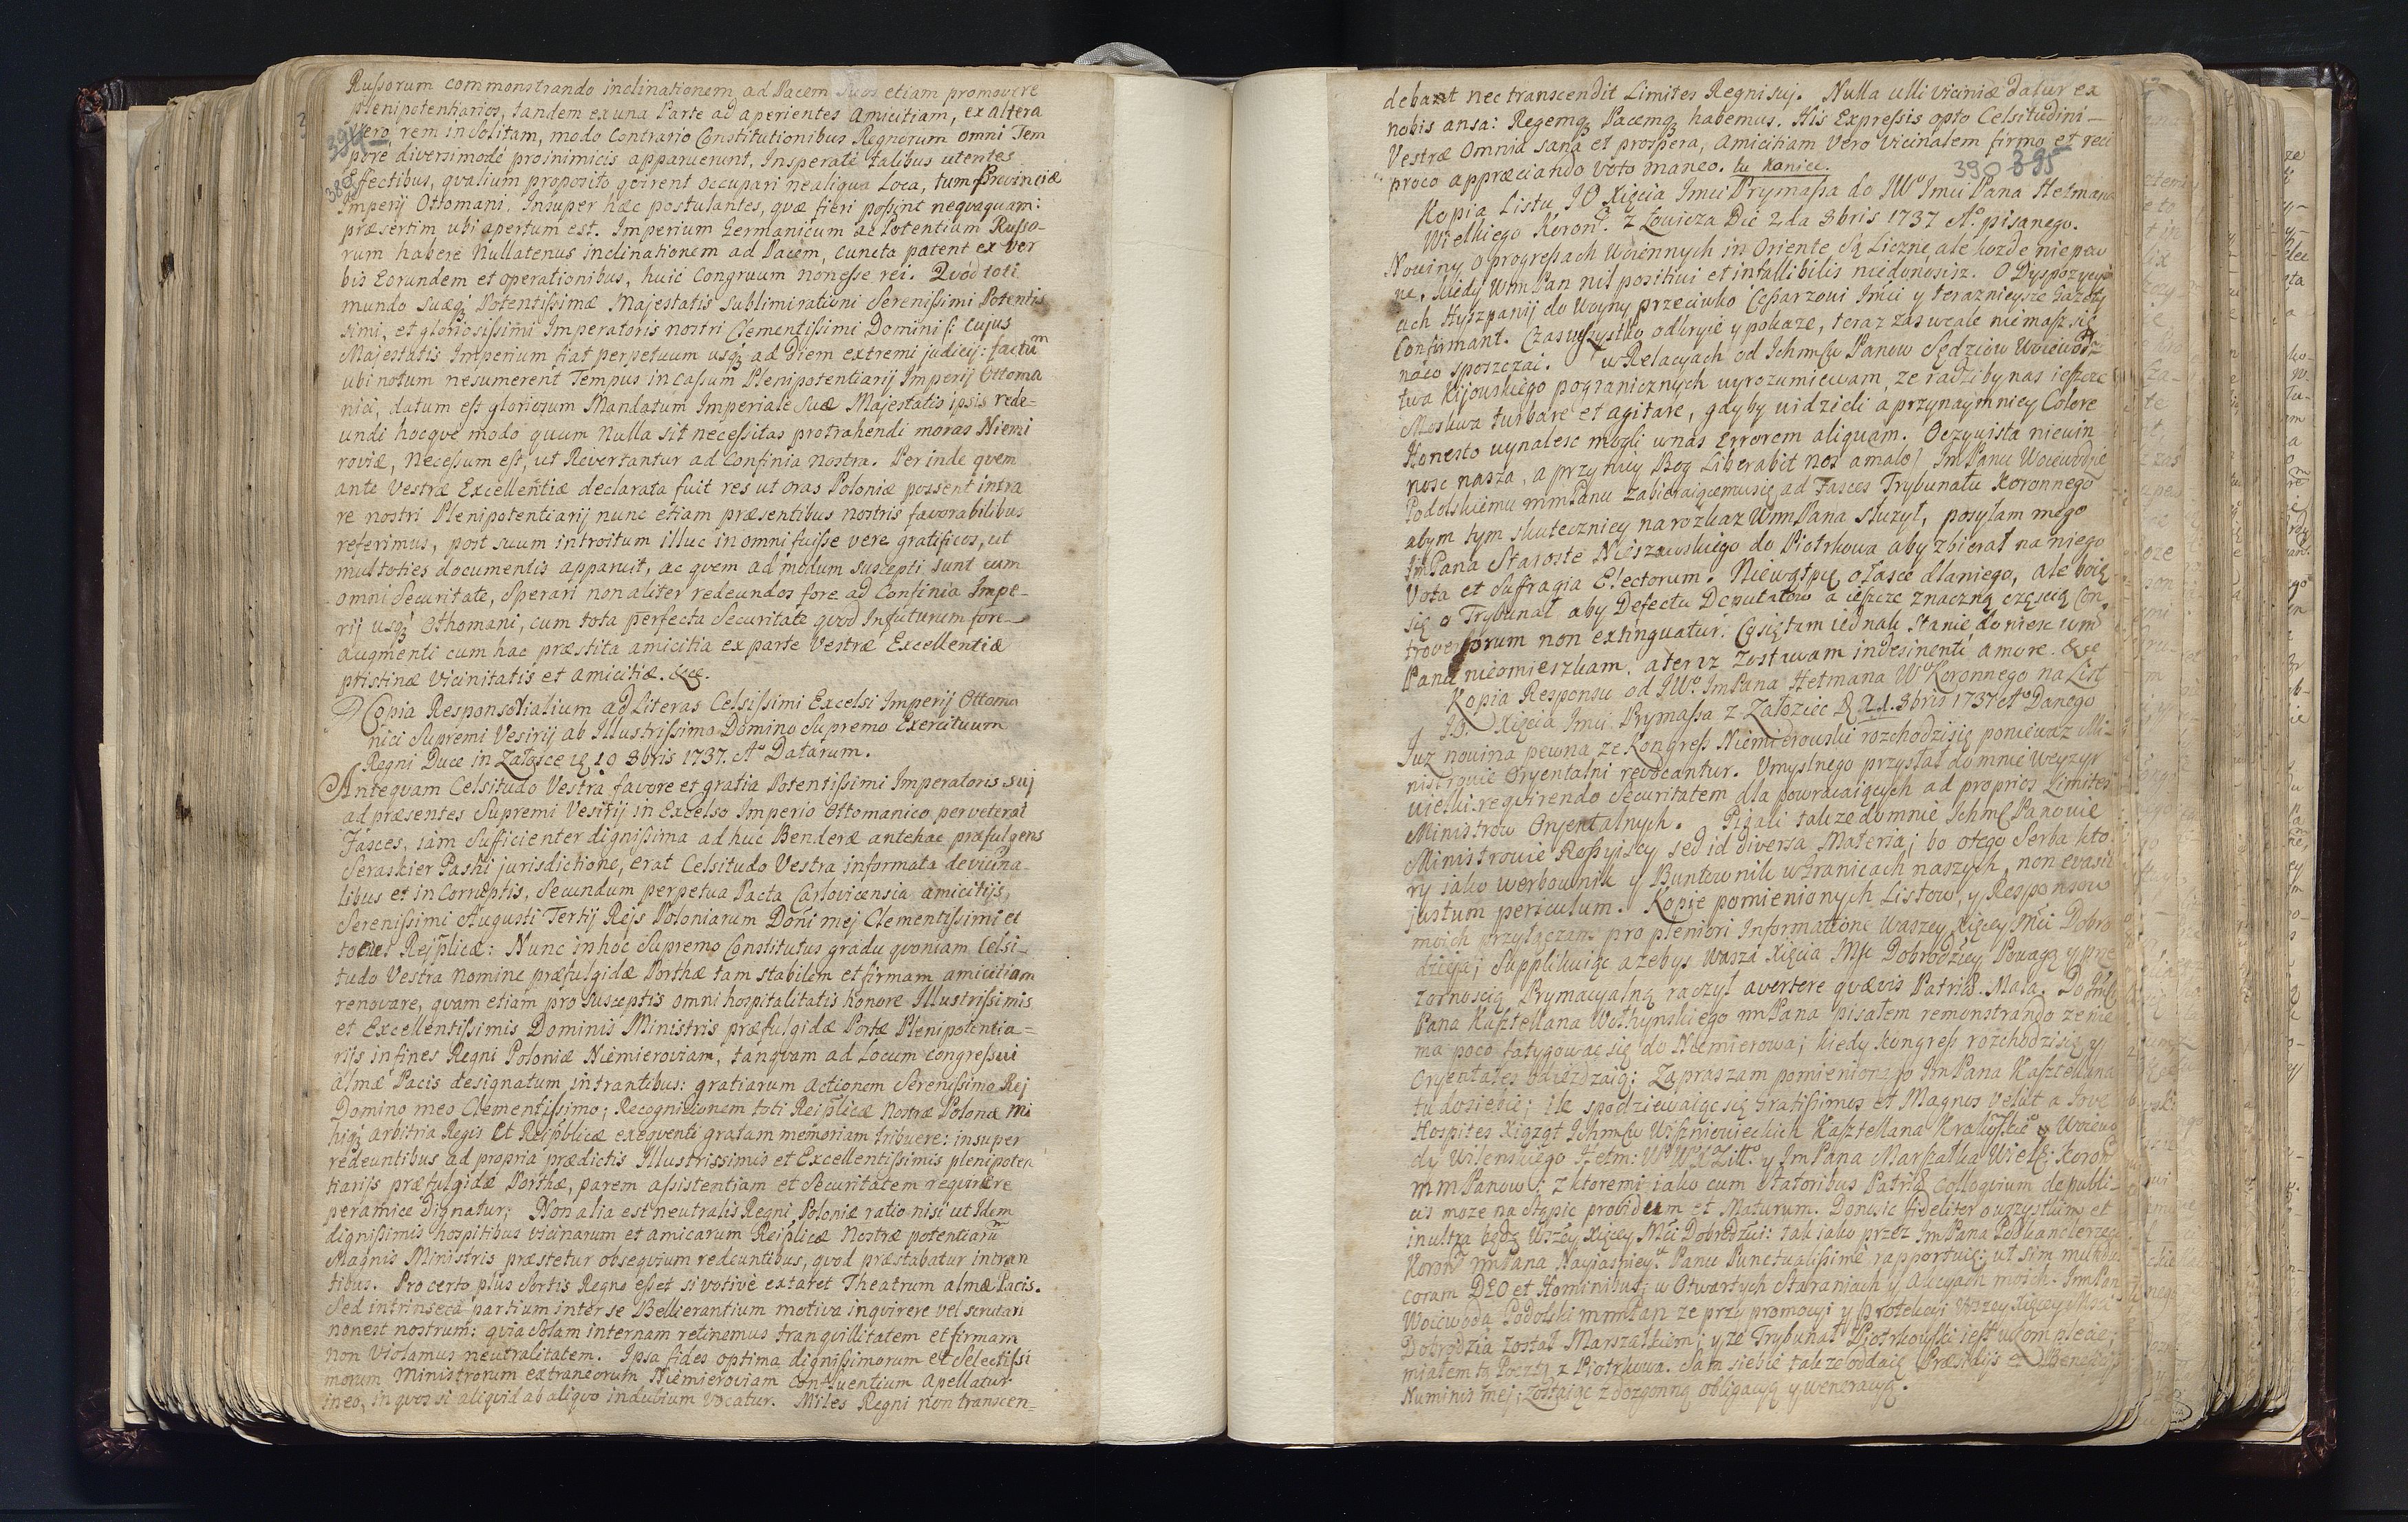 Russorum commonstrando inclinationem ad Pacem Suos etiam promovere
plenipotentiarios, tandem ex una Parte ad aperientes Amicitiam, ex altera
vero rem insolitam, modo Contrario Constitutionibus Regnorum omni Tem
394
pore diversimodè pro inimicis apparuerunt, Insperatè talibus utentes
389
Effectibus, qvalium proposito qvirent occupari ne aliqua Loca, tum Provinciæ
Imperij Ottomani. Insuper hæc postulantes, qvæ fieri possint neqvaquam:
præsertim ubi apertum est. Imperium Germanicum ac Potentiam Russo-
rum habere Nullatenus inclinationem ad Pacem, cuncta patent ex ver
bis Eorundem et operationibus, huic Congruum non esse rei. Qvòd toti
mundo Suæqz Potentissimæ Majestatis Sublimirationi Serenissimi Potentis
simi, et gloriosissimi Imperatoris nostri Clementissimi Domini /: cujus
Majestatis Imperium fiat perpetuum usqz ad Diem extremi judicij: factum
ubi notum ne sumerent Tempus in cassum Plenipotentiarij Imperij Ottoma
nici, datum est gloriosum Mandatum Imperiale Suæ Majestatis ipsis rede=
undi hocqve modo quum Nulla sit necessitas protrahendi moras Niemi
roviæ, Necessum est, ut Revertantur ad Confinia nostra. Perinde qvem
ante Vestræ Excellentiæ declarata fuit res ut oras Poloniæ possent intra
re nostri Plenipotentiarij nunc etiam præsentibus nostris favorabilibus
referimus, post suum introitum illuc in omni fuisse vere gratificos, ut
multoties documentis apparuit, ac qvem ad modum suscepti sunt cum
omni Securitate, Sperari non aliter redeundos fore ad Confinia Impe-
rij usqz Othomani, cum tota perfecta Securitate qvod In futurum fore
augmenti cum hac præstita amicitia ex parte Vestræ Excellentiæ
pristinæ Vicinitatis et amicitiæ. &ce.
Copia Responsorialium ad Literas Celsissimi Excelsi Imperij Ottoma
nici Supremi Vesirij ab Illustrissimo Domino Supremo Exercituum
Regni Duce in Załośce 19 8bris 1737. Ao Datarum.
Anteqvam Celsitudo Vestra favore et gratia Potentissimi Imperatoris Suj
ad præsentes Supremi Vesirij in Excelso Imperio Ottomanico pervenerat
Fasces, iam Sufficienter dignissima ad huc Benderæ antehac præfulgens
Seraskier Pashi jurisdictione, erat Celsitudo Vestra informata de vicina-
libus et in Corruptis, Secundum perpetua Pacta Carlovicensia amicitijs,
Serenissimi Augusti Tertij Regis Poloniarum Dni mej Clementissimi et
totius Reiplicæ: Nunc in hoc Supremo Constitutus gradu qvoniam Celsi-
tudo Vestra Nomine præfulgidæ Porthæ tam stabilem et firmam amicitiam
renovare, qvam etiam pro susceptis omni hospitalitatis honore Illustrissimis
et Excellentissimis Dominis Ministris præfulgidæ Portæ Plenipotentia=
rijs in fines Regni Poloniæ Niemieroviam, tanqvam ad Locum congressui
almæ Pacis designatum intrantibus: gratiarum actionem Serenissimo Regi
Domino meo Clementissimo; Recognitionem toti Reiplicæ Nostræ Polonæ mi
hiqz arbitria Regis et Reipblicæ exeqventi gratam memoriam tribuere: insuper
redeuntibus ad propria prædictis Illustrissimis et Excellentissimis plenipoten
tiarijs præfulgidæ Porthæ, parem assistentiam et Securitatem reqvirere
peramice dignatur; Non alia est neutralis Regni Poloniæ ratio nisi ut Idem
dignissimis hospitibus vicinarum et amicarum Reiplicæ Nostræ potentiarum
Magnis Ministris præstetur obseqvium redeuntibus, qvod præstabatur intran
tibus. Pro certo pius Sortis Regno esset si votivè extaret Theatrum almæ Pacis.
Sed intrinseca partium inter se Bellierantium motiva inqvirere vel scrutari
non est nostrum: qvia Solam internam retinemus tranqvillitatem et firmam
non Violamus neutralitatem. Ipsa fides optima dignissimorum et Selectissi
morum Ministrorum extraneorum Niemieroviam Confluentium apellatur
in eo, in qvo si aliqvid ab aliqvo in dubium vocatur. Miles Regni non transcen-
debant nec transcendit Limites Regni suj. Nulla ulli viciniæ datur ex
nobis ansa: Regemqz Pacemqz habemus. His Expressis opto Celsitudini
Vestræ Omnia Sana et prospera, Amicitiam Vero vicinalem firmo et reci
proco appræciando Voto maneo. tu Koniec.
390 395
Kopia Listu JO Xięcia Imci Prymassa do JWo Imci Pana Hetmana
Wielkiego Koron. z Łowicza Die 2da 8bris 1737 Ao pisanego.
Nowiny o progressach Woiennych in Oriente są Liczne, ale każde niepew
ne, kiedy WmPan nil positivi et infallibilis niedonosisz. O Dyspozycy
ach Hyszpanij do Woyny przeciwko Cesarzowi Imci y terazniejsze Gazety
Confirmant. Czas wszystko odkryie y pokaze, teraz zas wcale niemasz się
naco sposzczać. w Relacyach od Ichmściw Panow Sędziow Woiewodz
twa Kijowskiego pogranicznych wyrozumiewam, ze radziby nas ieszcze
Moskwa turbare et agitare, gdyby widzieli a przynaymniey Colore
Honesto wynalesc mogli w nas Errorem aliquam. Oczywista niewin
nosc nasza, a przy tniy Bog Liberabit nos a malo / ImPanu Woiewodzie
Podolskiemu mmPanu zabieraiącemu się ad Fasces Trybunału Koronnego
abym tym skuteczniey na rozkaz WmPana słuzył, posyłam mego
ImPana Starostę Niszawskiego do Piotrkowa aby zbierał na niego
Vota et Suffragia Electorum. Niewątpię o łasce dlaniego, ale boię
się o Trybunał, aby Defectu Deputatow a ieszcze znaczną częscią Con
troversorum non extinguatur. Co się tam iednak stanie doniesc wm
Panu nieomieszkam. a teraz zostawam indesinenti amore. &ce
Kopia Responsu od JWo ImPana Hetmana Wo Koronnego na List
JO. Xięcia Imci Prymassa z Załoziec 21. 8bris 1737 Ao Danego
Juz nowina pewna ze Kongress Niemierowski rozchodzi się poniewaz Mi-
nistrowie Oryentalni revocantur. Umyslnego przysłał do mnie Wezyr
wielki reqvirendo Securitatem dla powracaiących ad proprios Limites
Ministrow Oryentalnych. Pisali takze do mnie Ichmść Panowie
Ministrowie Rossyiscy sed id diversa Materia; bo o tego Serba kto
ry iako werbownik y Buntownik w Granicach naszych, non evasit
justum periculum. Kopie pomienionych Listow, y Responsow
moich przyłączam pro pleniori Informatione Waszey Xięcey Mci Dobro
dzieja; Supplikuiąc azebys Wasza Xięcia Mść Dobrodziey Powagą y prze
zornoscią Prymacyalną raczył avertere qvævis Patriæ Mala. Do Imści
Pana Kasztellana Wołhynskiego mmPana pisałem remonstrando ze nie
ma poco fatygowac się do Niemierowa; kiedy kongress rozchodzi się y
Oryentales odiezdzaią: Zapraszam pomienionego ImPana Kasztellana
tu do siebie; ile spodziewaiąc się Gratissimos et Magnos Velut a Jove
Hospites Xiąząt Ichmściw Wiszniowieckich Kasztellana Krakowskie y Woiewo
dy Wilenskiego Hetm: Wo WXLitt. y ImPana Marszałka Wielk: Koron
mmPanow; z ktoremi iako cum Statoribus Patriæ Colloqvium de publi-
cis moze na stąpic providum et Maturum. Doniosę fideliter o wszystkim et
inultra będę Wszey Xięcey Mci Dobrodzwi: tak iako przez ImPana Podkanclerzego
Koron mmPana Nayiasniey. Panu Punctualissime rapportuię; ut sim mundus
coram DEO et Hominibus; w Otwartych Staraniach y Akcyach moich. ImPan
Woiewoda Podolski mmPan ze przy promocyi y protekcyi Wszey Xięcey Mści
Dobrodzia został Marszałkiem; y ze Trybunał Piotrkowski iest w komplecie;
miałem tą Pocztą z Piotrkowa. Sam siebie takze oddaię Præsidijs et Beneficijs
Numinis mej; Zostaiąc z dozgonną obligacyą y weneracyą.